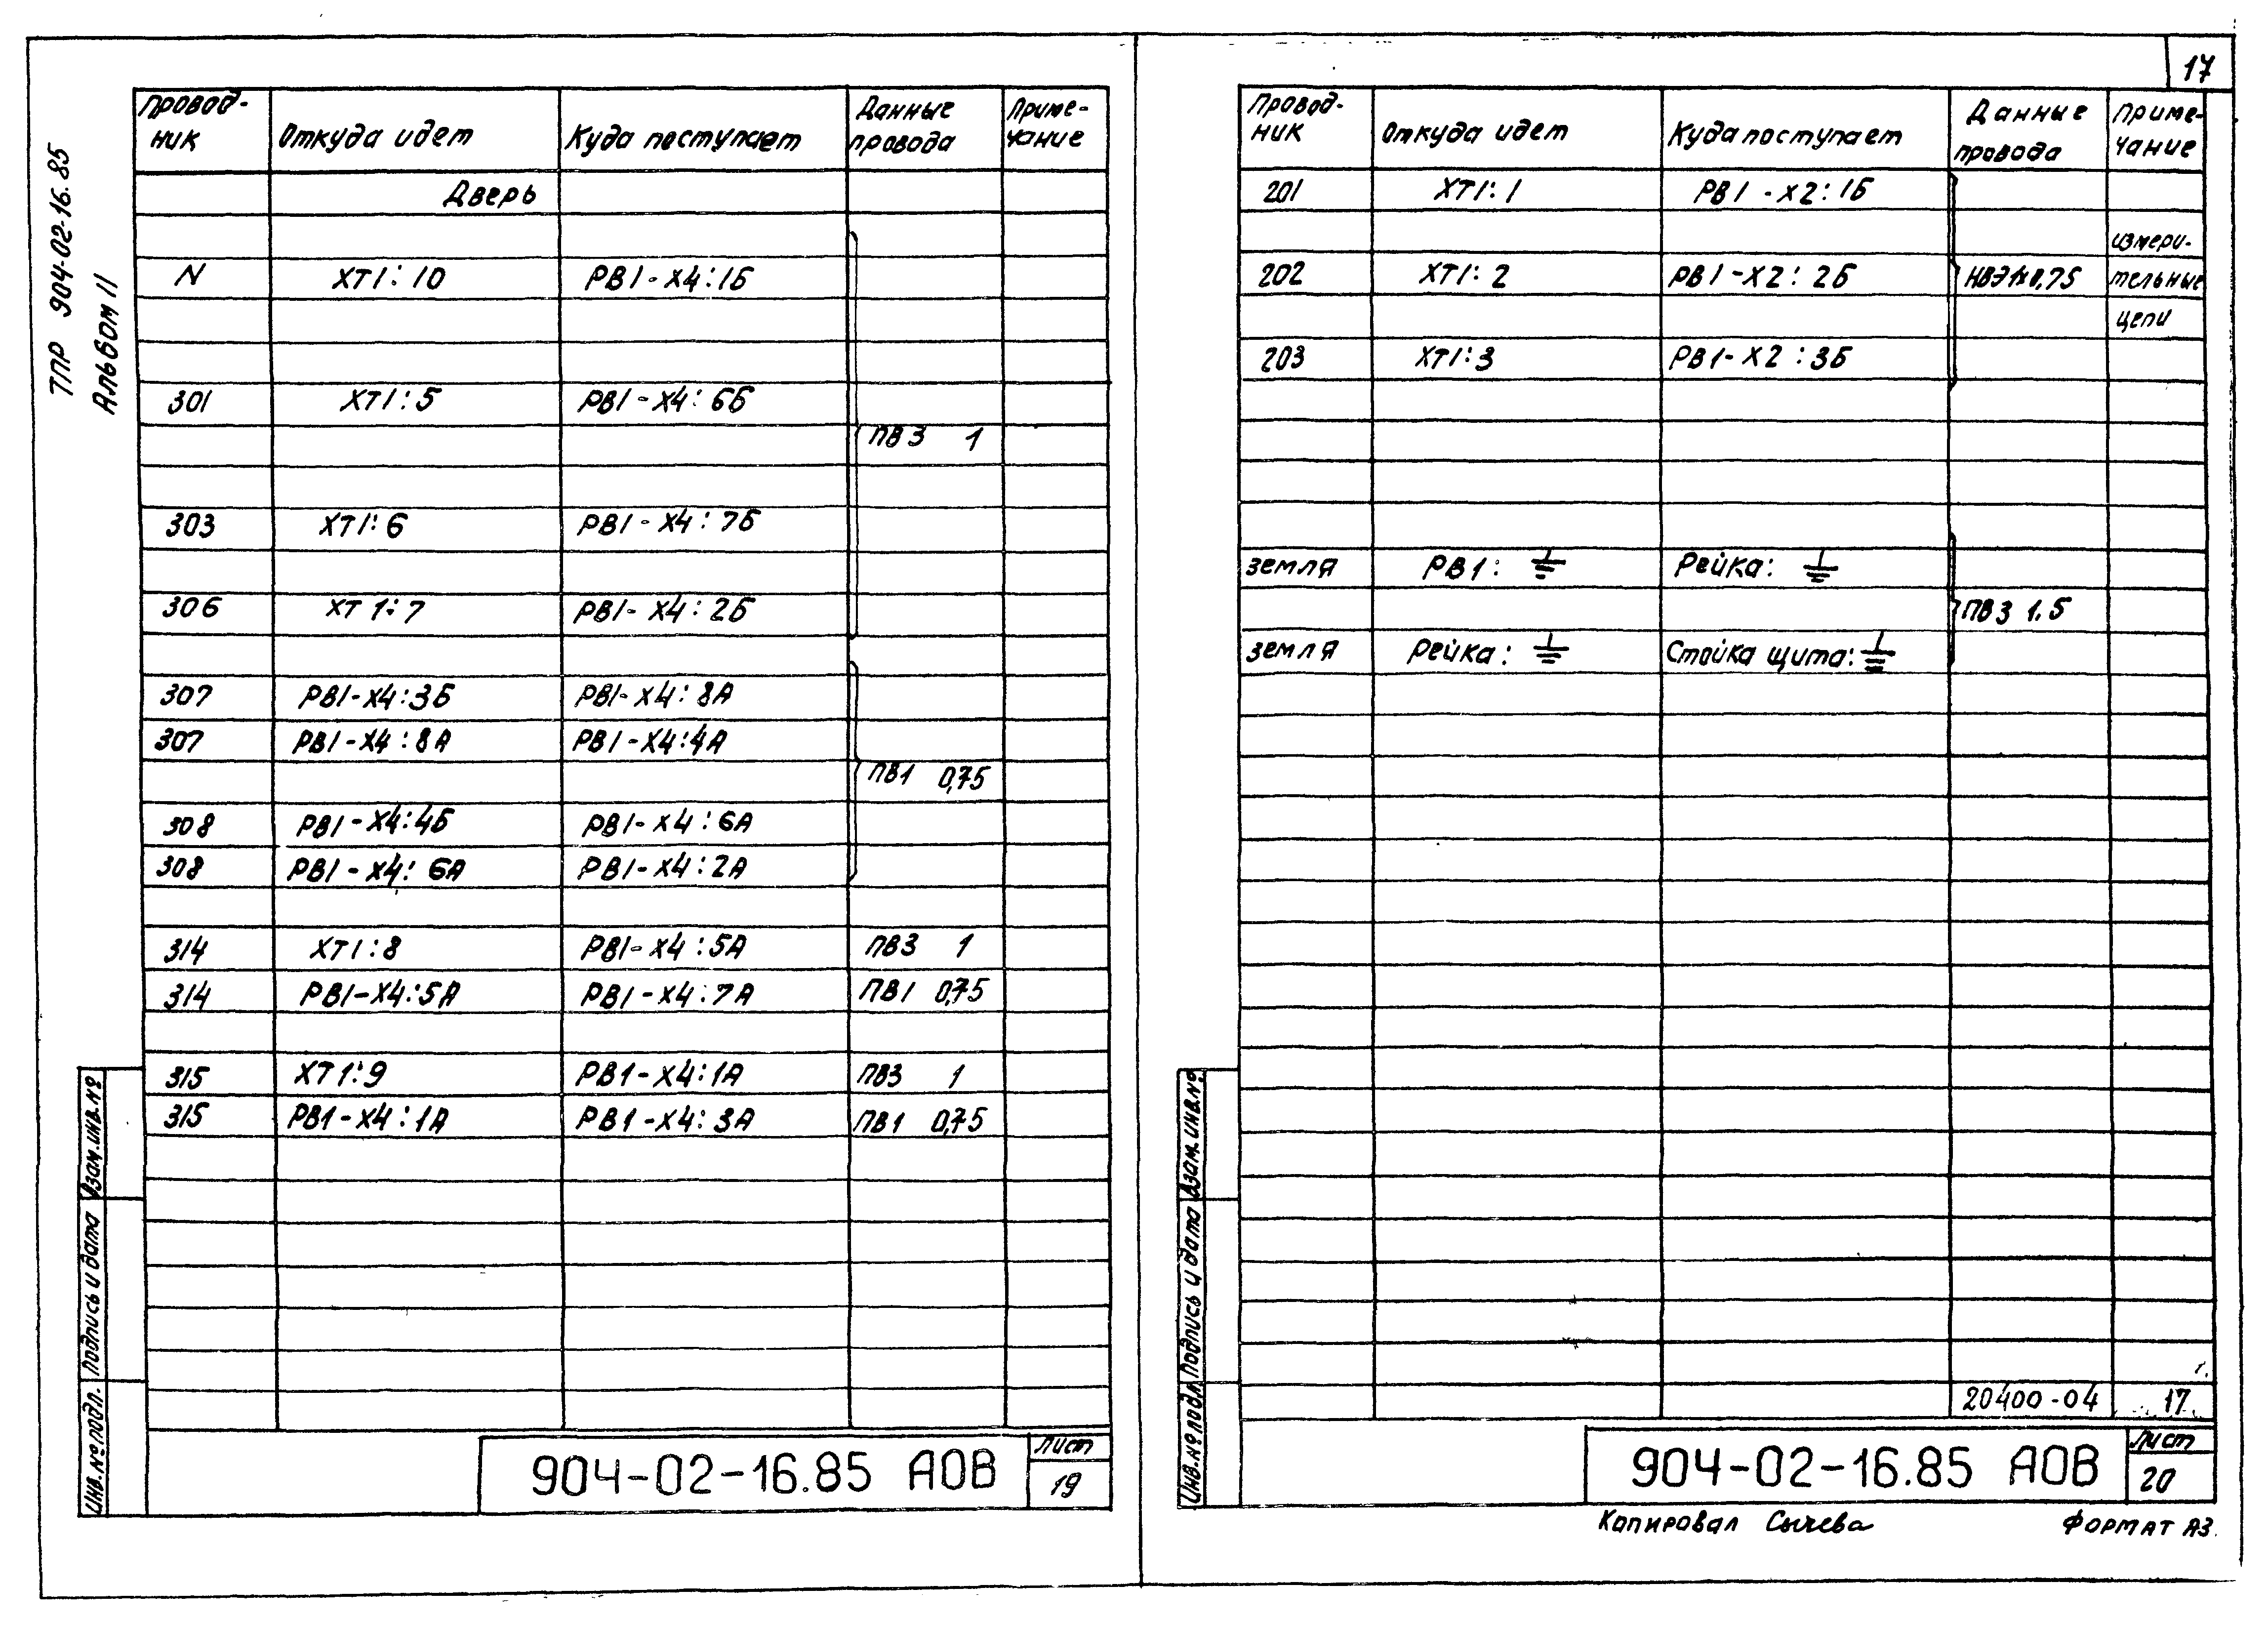 ТПР 904-02-16.85
Альбом II
Провод-
ник
Откуда идет
Куда поступает
Данные
провода
Приме-
чание
Дверь
N ХТ1:10 РВ1-Х4:1Б
301 ХТ1:5 РВ1-Х4:6Б
ПВ3 1
303 ХТ1:6 РВ1-Х4:7Б
306 ХТ1:7 РВ1-Х4:2Б
307 РВ1-Х4:3Б РВ1-Х4:8А
307 РВ1-Х4:8А РВ1-Х4:4А
ПВ1 0,75
308 РВ1-Х4:4Б РВ1-Х4:6А
308 РВ1-Х4:6А РВ1-Х4:2А
314 ХТ1:8 РВ1-Х4:5А ПВ3 1
314 РВ1-Х4:5А РВ1-Х4:7А ПВ1 0,75
315 ХТ1:9 РВ1-Х4:1А ПВ3 1
315 РВ1-Х4:1А РВ1-Х4:3А ПВ1 0,75
Взам.инв.№
Подпись и дата
Инв.№ подл.
904-02-16.85 АОВ
Лист
19
17
Провод-
ник
Откуда идет
Куда поступает
Данные
провода
Приме-
чание
201 ХТ1:1 РВ1-Х2:1Б
измери-
202 ХТ1:2 РВ1-Х2:2Б НВЭ 1х0,75 тельные
цепи
203 ХТ1:3 РВ1-Х2:3Б
земля РВ1: ⏚ Рейка: ⏚
ПВ3 1.5
земля Рейка: ⏚ Стойка щита: ⏚
Взам.инв.№
Подпись и дата
Инв.№ подл.
20400-04 17
904-02-16.85 АОВ
Лист
20
Копировал Сычева
Формат А3.